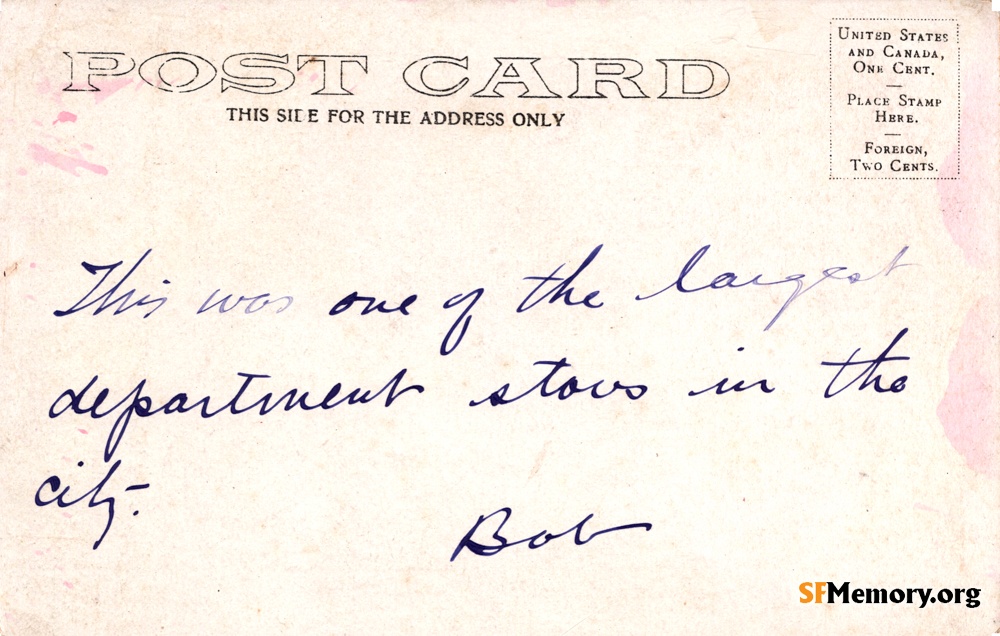 POST CARD
THIS SIDE FOR THE ADDRESS ONLY
UNITED STATES
AND CANADA,
ONE CENT.
PLACE STAMP
HERE.
FOREIGN,
TWO CENTS.
This was one of the largest
department stores in the
city.
Bob
SFMemory.org